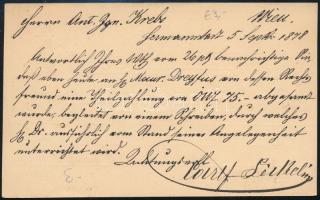 Herrn Ant. Ign. Krebs Wien.
Hermannstadt 5 Septbr 1878
Antwortlich Ihres vom 26 benachrichtige Sie,
daß eben heute an H. Maur. Dreyfus von dessen Rechts
freunde eine Theilzahlung von ÖW 75.– abgesandt
wurde, begleitet von einem Schreiben, durch welches
H. Dr. ausführlich vom Stand seiner Angelegenheit
unterrichtet wird.
Carl